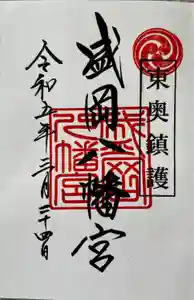 東奥鎮護
盛岡八幡宮
令和五年三月二十四日